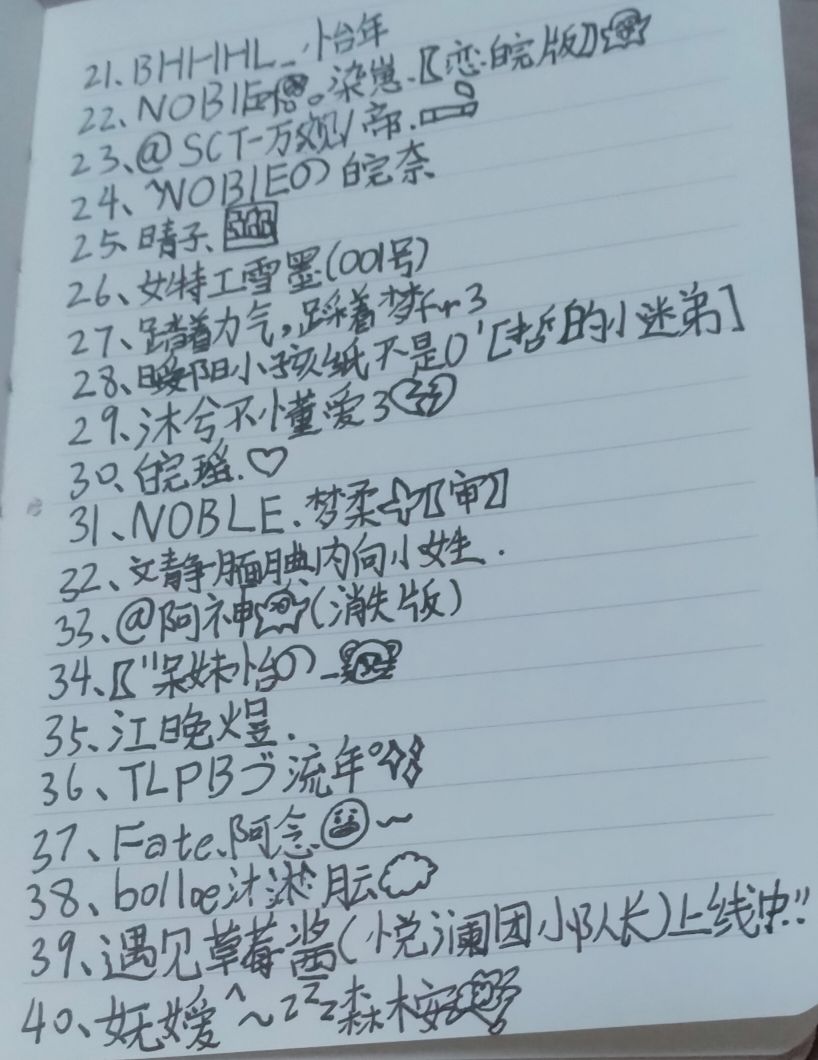 21、BHHHL_怡年
22、NOBIE 。染崽.〖恋皖版〗
23、@SCT-万观/帝.
24、^NOBIEの皖奈
25、晴子、
26、女特工雪墨(001号)
27、踏着力气,踩着梦 3
28、暖阳小孩纸不是0'[哲的小迷弟]
29、沐兮不懂爱3
30、皖瑶.♡
31、NOBLE.梦柔〖审〗
32、文静腼腆内向小女生.
33、@阿神(消失版)
34、〖"呆妹怡の_
35、江晚煜.
36、TLPBづ流年°
37、Fate、阿念~
38、bolloe沐淋
39、遇见草莓酱(悦澜团小队长)上线中!!
40、妩嫒^~zzz森木安